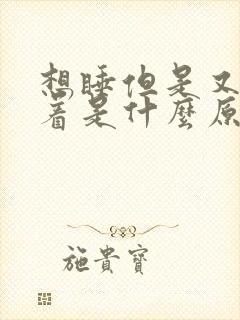 想睡但是又
着是什麼原
施貴寶